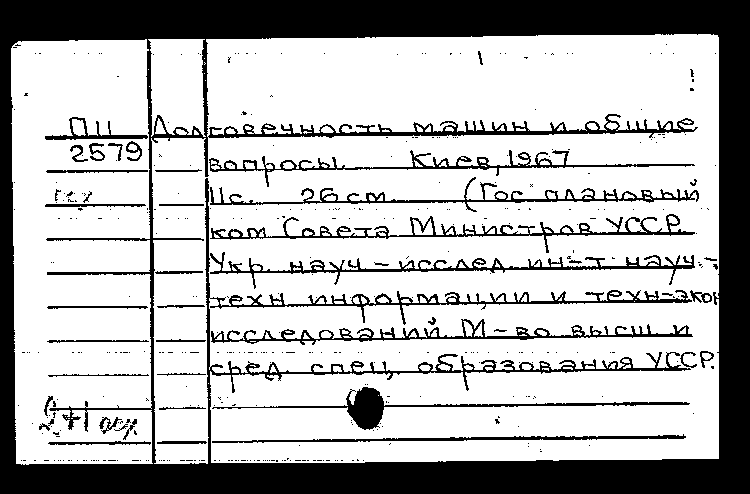 П11 Долговечность машин и общие
2579 вопросы. Киев, 1967
11с. 26 см. (Гос плановый
ком Совета Министров УССР.
Укр. науч-исслед. ин-т науч.-
техн информации и техн-экон
исследований. М-во высш и
сред. спец. образования УССР.
2+1